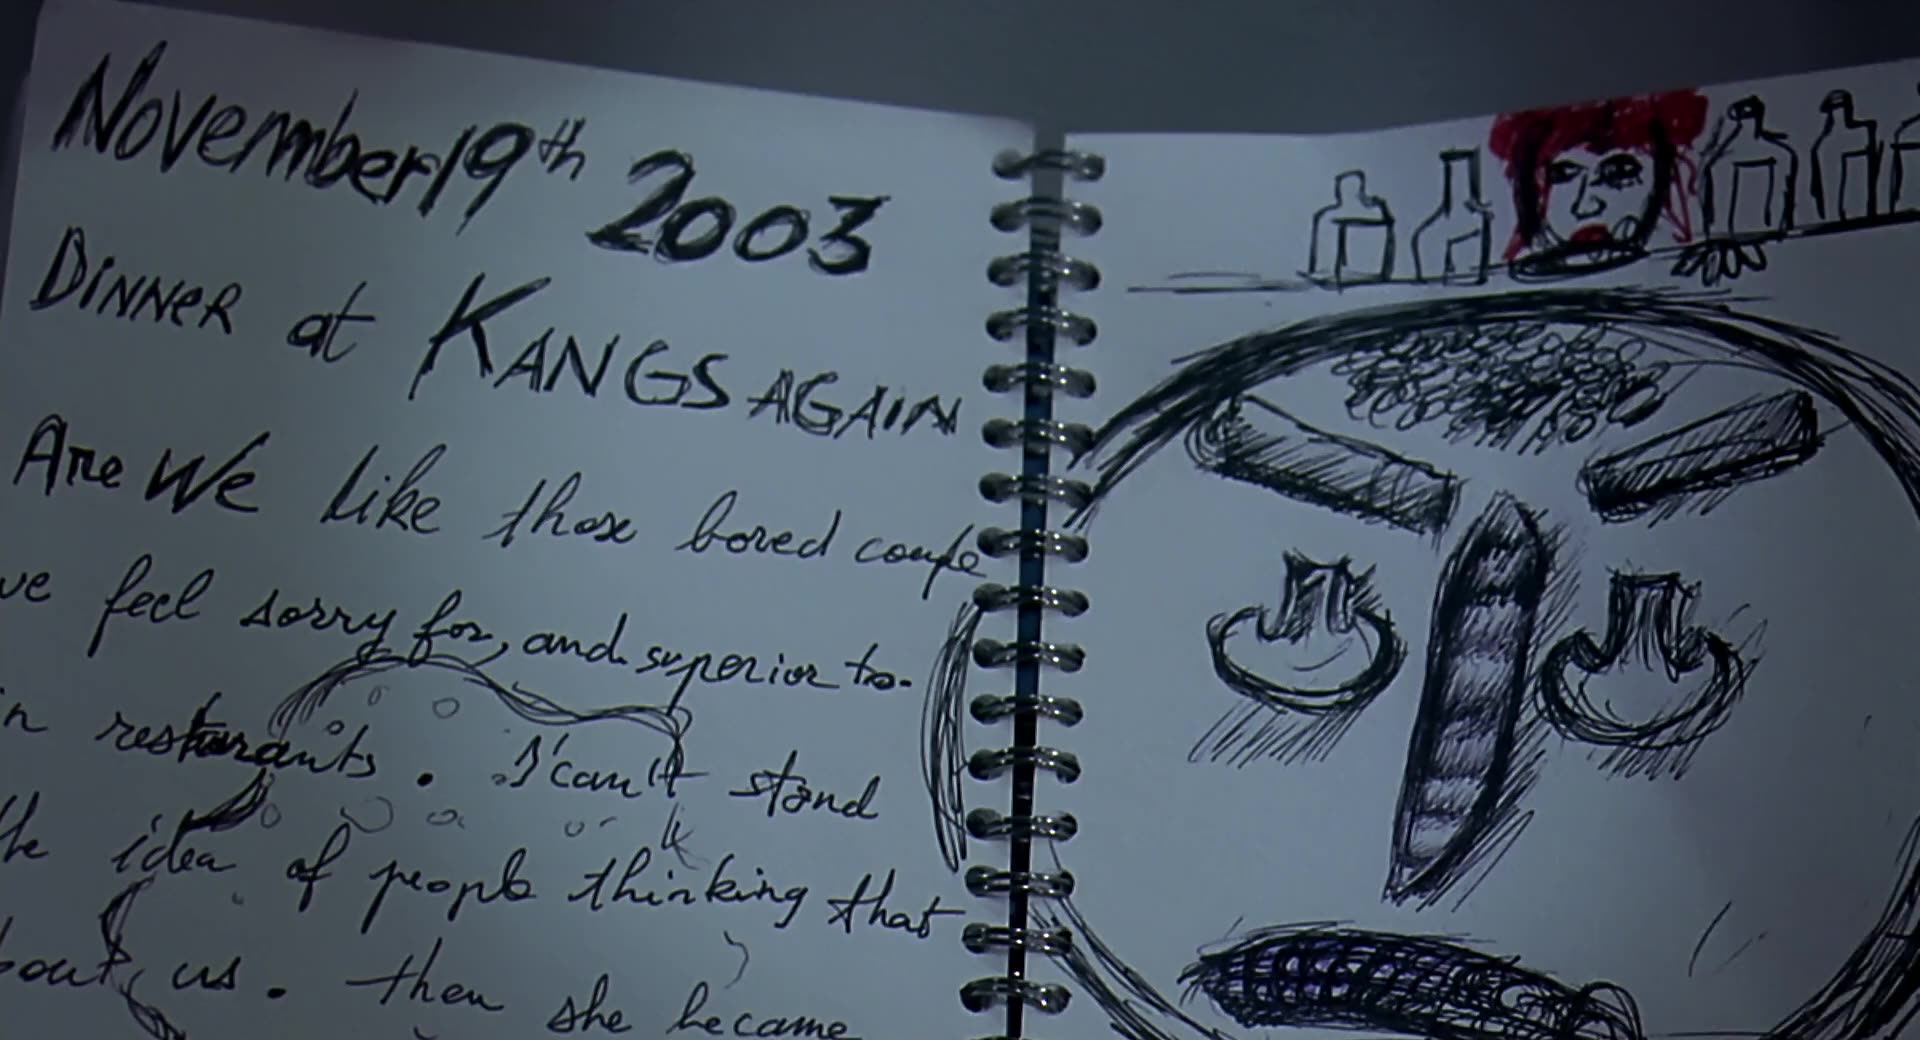 November 19th 2003
DINNER at KANGS AGAIN
Are We like those bored coupe
ve feel sorry for, and superior to.
in resturants. I can't stand
the idea of people thinking that
bout us. then she became